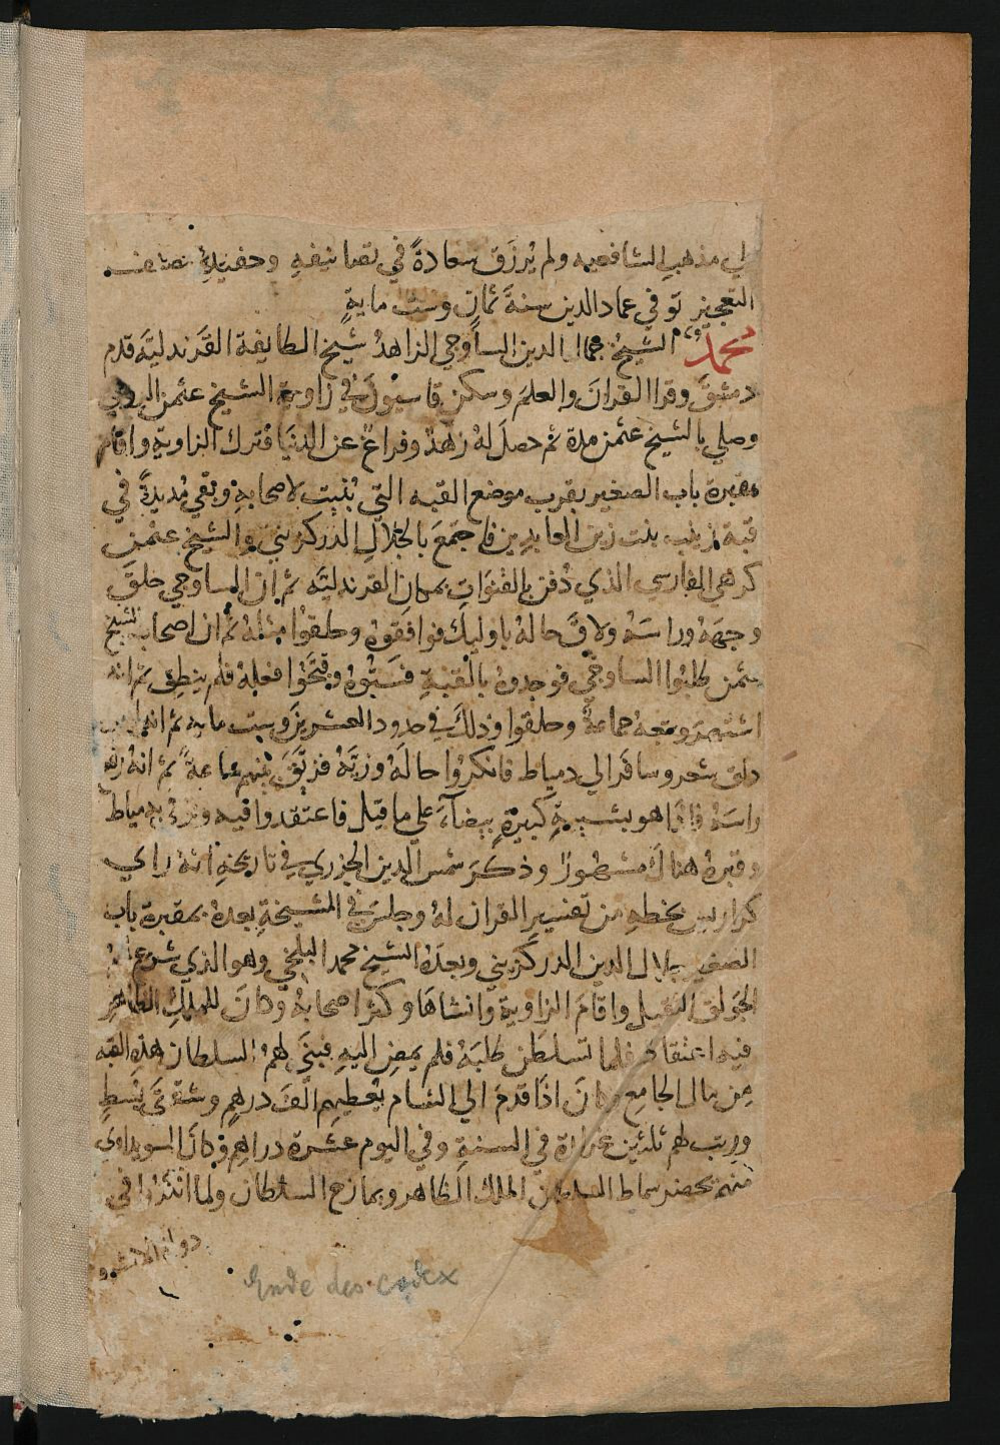 الي مذهب الشافعيه ولم يُرزَق سعادةً في تصانيفهِ وحفيدهُ صنف
التعجيز توفي عماد الدين سنةَ ثمانٍ وست مايةٍ
محمد الشيخ جمال الدين الساوجي الزاهدُ شيخ الطايفة القرندليَّه قدم
دمشقَ وقرا القرانَ والعلمَ وسكن قاسيُونَ في زاوية الشيخ عثمن الرومي
وصلي بالشيخ عثمن مدة ثم حصلَ لهُ زهدٌ وفراغٌ عن الدنيا فترك الزاوية واقام
بمقبرة باب الصغير بقرب موضع القبه التي بُنيت لاصحابهِ وبقي مُديدةً في
قبة زينب بنت زين العابدين فاجتمعَ بالجلال الدركزيني والشيخ عثمن
كوهي الفارسي الذي دُفن بالقنَوَاتِ بمكان القرندليَّه ثم ان الساوجي حلقَ
وجهَهُ وراسَهُ ولاقَ حالهُ باوليك فوافقوهُ وحلقوا مثلهُ ثم ان اصحاب الشيخ
عثمن طلبُوا الساوجيَّ فوجدوهُ بالقبّةِ فسَبُّوهُ وقبَّحُوا فعلهُ فلم ينطق ثم انه
اشتهرَ وتبعهُ جماعةً وحلقوا وذلكَ في حدود العشرين وست مايه ثم انه لبس
دلق شعر وسافر الي دمياط فانكرُوا حالَهُ وزيَّهُ فزيَّقَ بينهم ساعةً ثم انهُ رفع
راسَهُ فاذا هو بشيبةٍ كبيرةٍ بيضآءَ علي ما قيل فاعتقدوا فيه وتوفي بدمياط
وقبرهُ هناك مشهورٌ وذكرَ شمس الدين الجزري في تاريخهِ انهُ راي
كراريس بخطهِ من تفسيرِ القران لهُ وجلسَ في المشيخةِ بعدهُ بمقبرة باب
الصغير جلال الدين الدركزيني وبعدَهُ الشيخ محمد البلخي وهو الذي شرع لهم
الجَولق الثقيل واقامَ الزاويةَ وانشاهَا وكثر اصحابهُ وكانَ للملكِ الظاهرِ
فيه اعتقاد فلما تسلطن طلبَهُ فلم يمض اليهِ فبنَى لهمُ السلطان هذه القبه
مِن مال الجامع وكانَ اذَا قدمَ الي الشام يُعطيهم الفَ درهمٍ وشقتَي بُسطٍ
ورتب لهم ثلثين غرارة في السنةِ وفي اليوم عشرة دراهم وكان السويداوي
منهم يحضر سماط السلطان الملك الظاهر ويمازح السلطان ولما انكرُوا في
Ende des codex